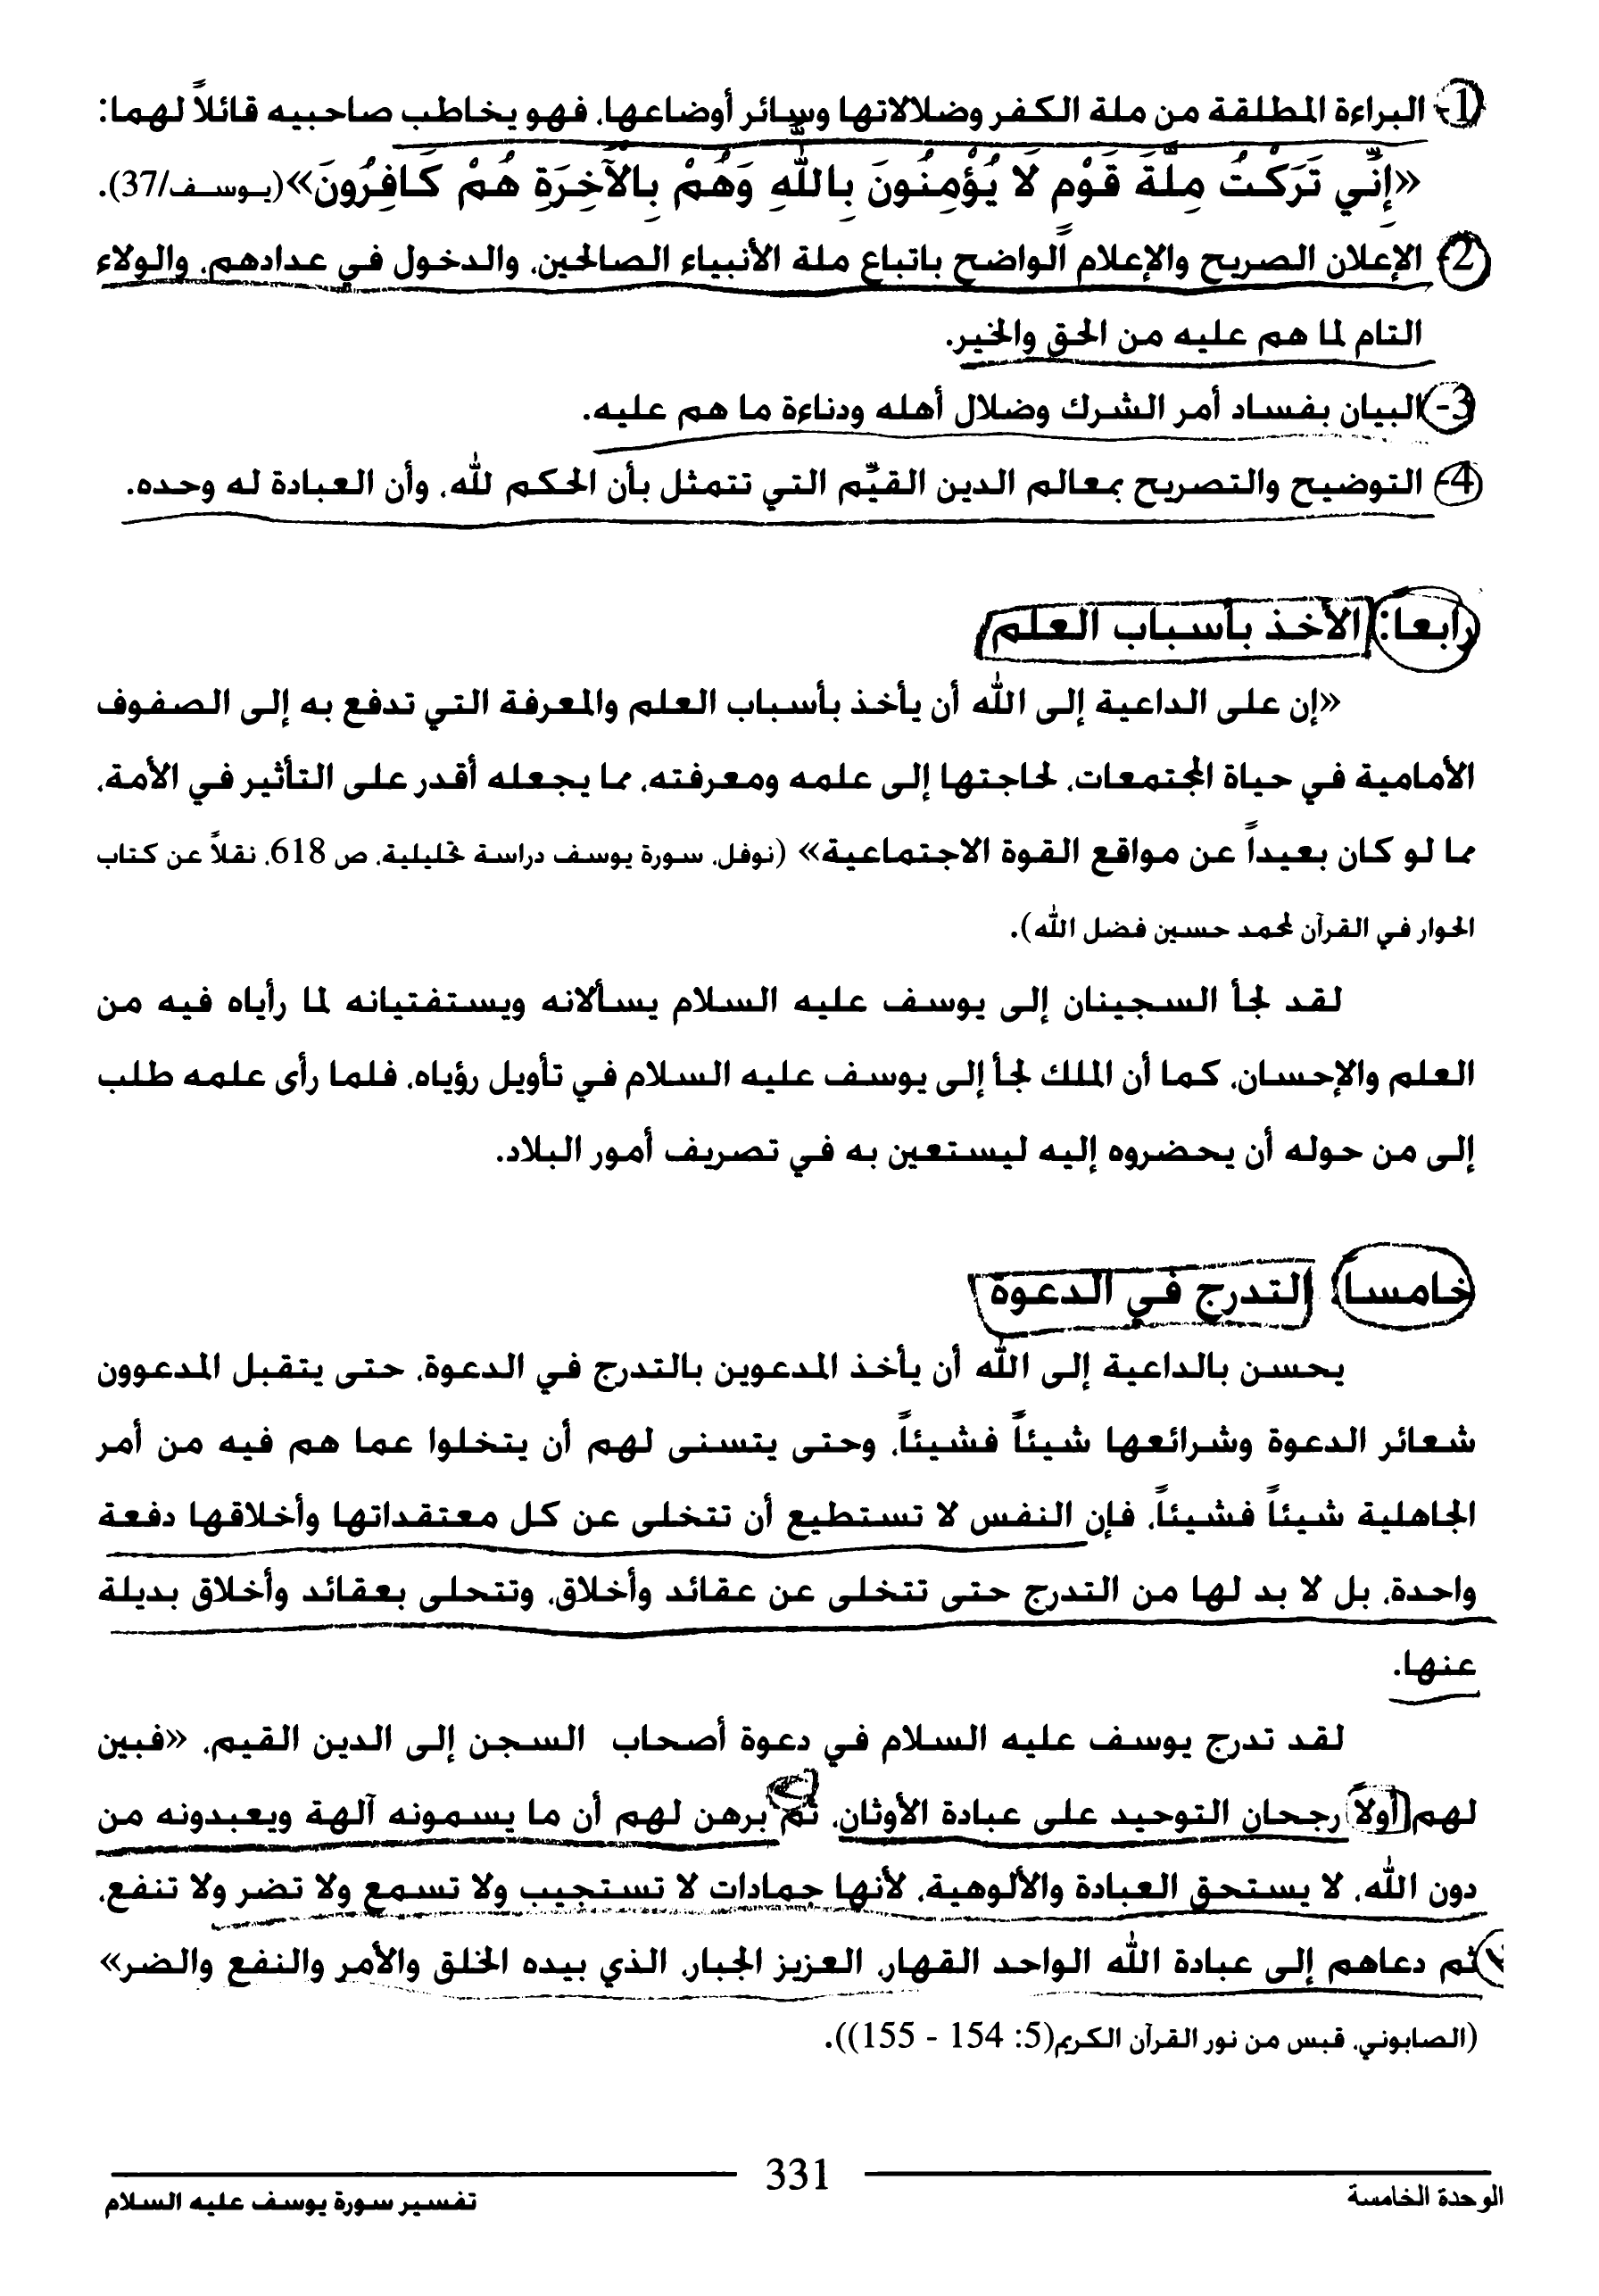 1- البراءة المطلقة من ملة الكفر وضلالاتها وسائر أوضاعها، فهو يخاطب صاحبيه قائلاً لهما:
«إِنِّي تَرَكْتُ مِلَّةَ قَوْمٍ لَا يُؤْمِنُونَ بِاللَّهِ وَهُمْ بِالْآخِرَةِ هُمْ كَافِرُونَ»(يوسف/37).
2- الإعلان الصريح والإعلام الواضح باتباع ملة الأنبياء الصالحين، والدخول في عدادهم، والولاء
التام لما هم عليه من الحق والخير.
3- البيان بفساد أمر الشرك وضلال أهله ودناءة ما هم عليه.
4- التوضيح والتصريح بمعالم الدين القيّم التي تتمثل بأن الحكم لله، وأن العبادة له وحده.
رابعا: الأخذ بأسباب العلم
«إن على الداعية إلى الله أن يأخذ بأسباب العلم والمعرفة التي تدفع به إلى الصفوف
الأمامية في حياة المجتمعات، لحاجتها إلى علمه ومعرفته، مما يجعله أقدر على التأثير في الأمة،
مما لو كان بعيداً عن مواقع القوة الاجتماعية» (نوفل، سورة يوسف دراسة تحليلية، ص 618، نقلاً عن كتاب
الحوار في القرآن لمحمد حسين فضل الله).
لقد لجأ السجينان إلى يوسف عليه السلام يسألانه ويستفتيانه لما رأياه فيه من
العلم والإحسان، كما أن الملك لجأ إلى يوسف عليه السلام في تأويل رؤياه، فلما رأى علمه طلب
إلى من حوله أن يحضروه إليه ليستعين به في تصريف أمور البلاد.
خامساً: التدرج في الدعوة
يحسن بالداعية إلى الله أن يأخذ المدعوين بالتدرج في الدعوة، حتى يتقبل المدعوون
شعائر الدعوة وشرائعها شيئاً فشيئاً، وحتى يتسنى لهم أن يتخلوا عما هم فيه من أمر
الجاهلية شيئاً فشيئاً، فإن النفس لا تستطيع أن تتخلى عن كل معتقداتها وأخلاقها دفعة
واحدة، بل لا بد لها من التدرج حتى تتخلى عن عقائد وأخلاق، وتتحلى بعقائد وأخلاق بديلة
عنها.
لقد تدرج يوسف عليه السلام في دعوة أصحاب السجن إلى الدين القيم، «فبين
لهم أولاً رجحان التوحيد على عبادة الأوثان، ثم برهن لهم أن ما يسمونه آلهة ويعبدونه من
دون الله، لا يستحق العبادة والألوهية، لأنها جمادات لا تستجيب ولا تسمع ولا تضر ولا تنفع،
ثم دعاهم إلى عبادة الله الواحد القهار، العزيز الجبار، الذي بيده الخلق والأمر والنفع والضر»
(الصابوني، قبس من نور القرآن الكريم(5: 154 - 155)).
331
الوحدة الخامسة
تفسير سورة يوسف عليه السلام